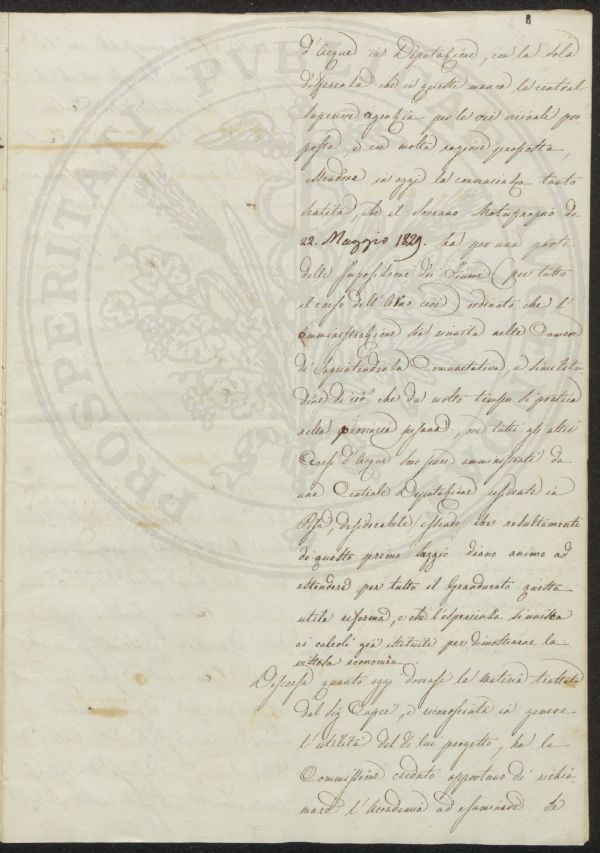 8
d'Acque in Deputazione, con la sola
differenza che in queste manca la central
superiore agenzia per le vie vicinali pro-
posta, e con molta ragione proposta,
essendone in oggi la convenienza tanto
sentita, che il Sovrano Motuproprio de
22. Maggio 1829. ha per una parte
delle Imposizione dei Fiumi (per tutto
il corso dell'Arno cioè) ordinato che l'
Amministrazione sia riunita nelle Camere
di Soprintendenza Comunitativa, a similitu-
dine di ciò che da molto tempo si pratica
nella provincia pisana, ove tutti gli altri
Corsi d'Acque sono pure amministrati da
una Centrale Deputazione residente in
Pisa, desiderabile essendo che resultamenti
di questo primo saggio diano animo ad
estendere per tutto il Granducato questa
utile riforma, e che l'esperienza si unisca
ai calcoli già istituiti per dimostrarne la
vistosa economia.
Discorsa quanto oggi dovasi la materia trattata
dal Sig. Capei, e riconosciuta in genere
l'utilità del di lui progetto, ha la
Commissione creduto opportuno di richia-
mare l'Accademia ad esaminare se
PROSPERITATI PVBLICAE